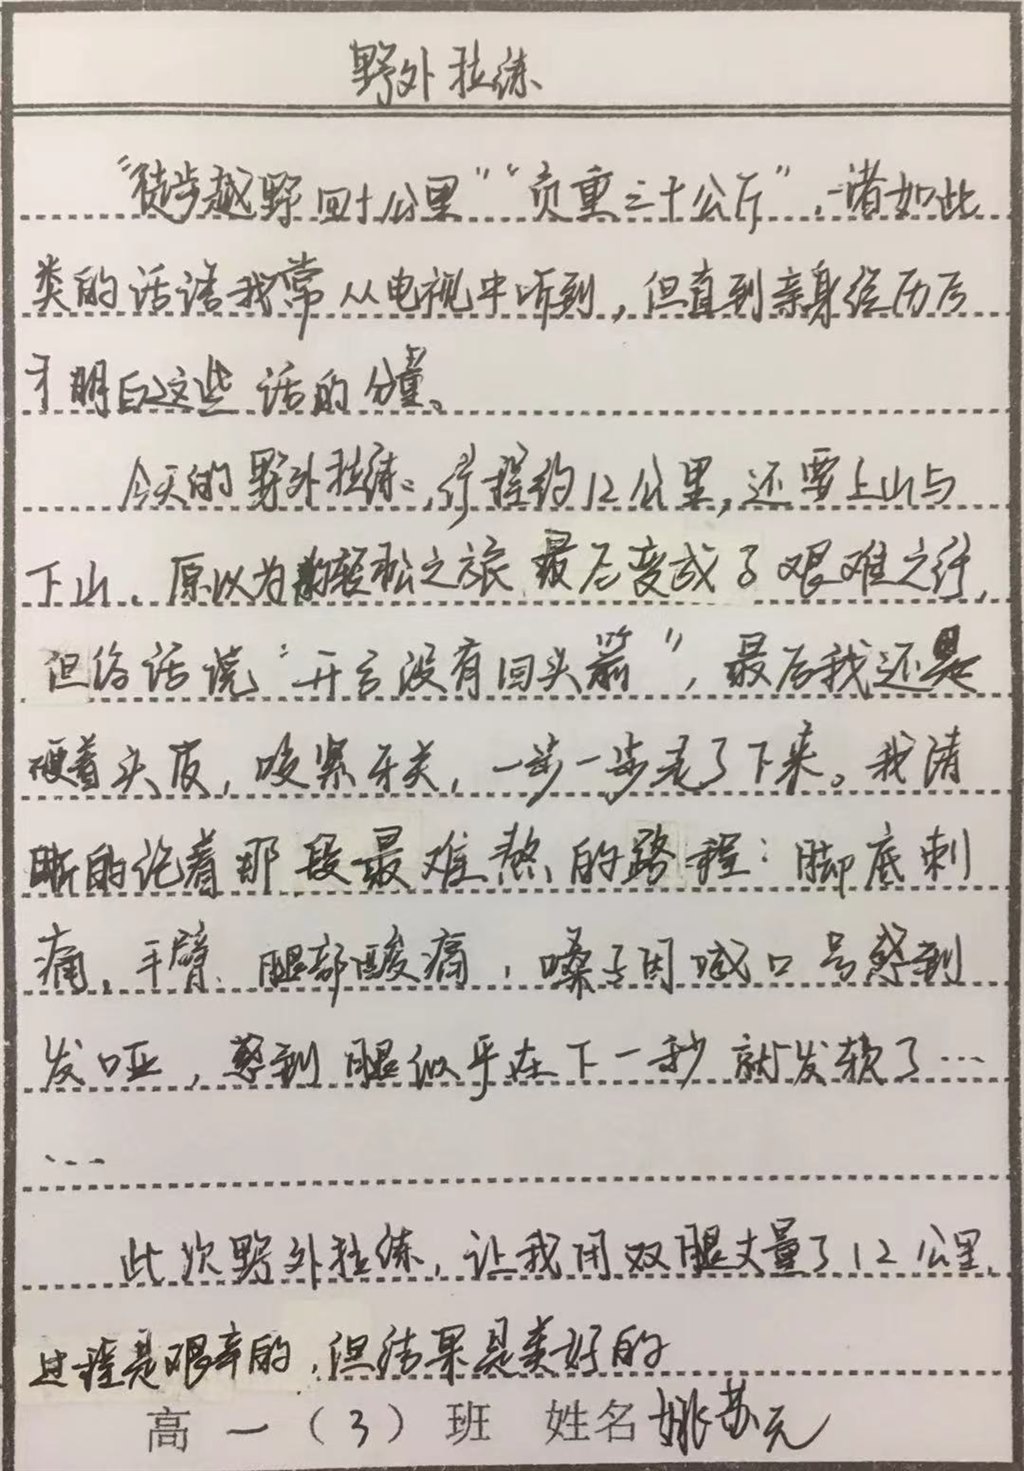 野外拉练
“徒步越野四十公里”“负重三十公斤”，诸如此
类的话语我常从电视中听到，但直到亲身经历后
才明白这些话的分量。
今天的野外拉练，行程约12公里，还要上山与
下山。原以为的轻松之旅最后变成了艰难之行，
但俗话说“开弓没有回头箭”，最后我还是
硬着头皮，咬紧牙关，一步一步走了下来。我清
晰的记着那段最难熬的路程：脚底刺
痛，手臂、腿部酸痛，嗓子因喊口号感到
发哑，感到腿似乎在下一秒就发软了…
…
此次野外拉练，让我用双腿丈量了12公里，
过程是艰辛的，但结果是美好的
高一（3）班 姓名姚苏元